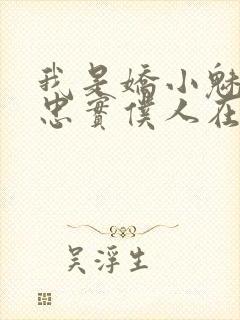 我是嬌小魅
忠實僕人在
吳浮生